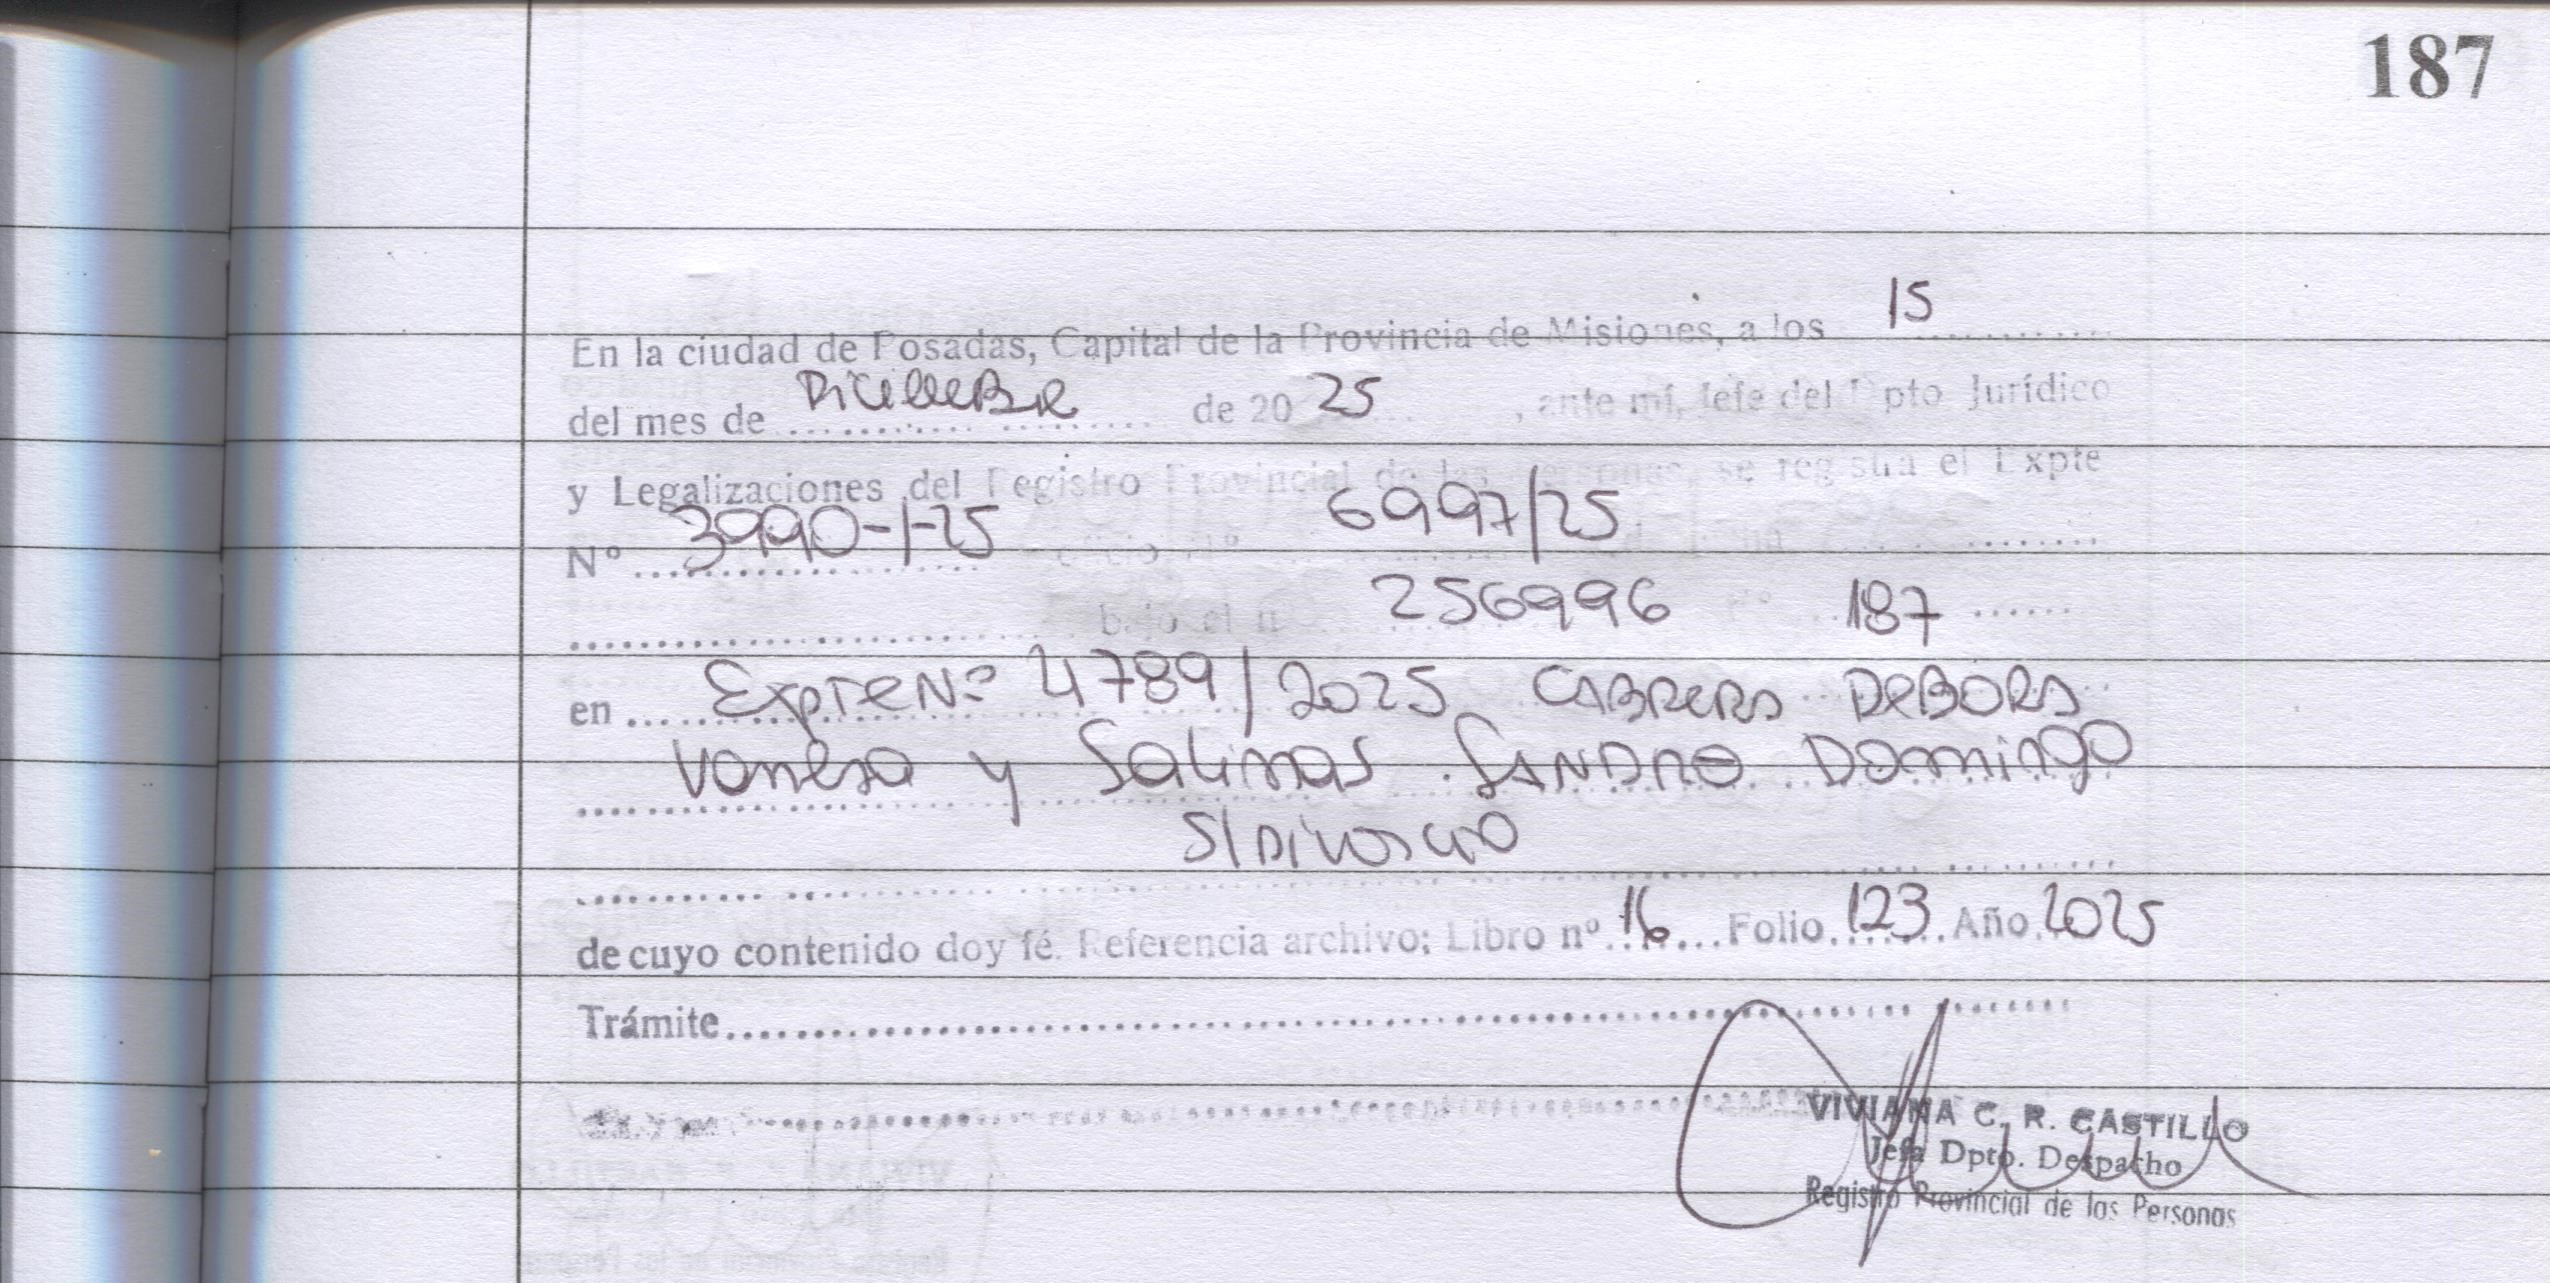 187
En la ciudad de Posadas, Capital de la Provincia de Misiones, a los 15
del mes de Diciembre de 20 25, ante mí, Jefe del Dpto Jurídico
y Legalizaciones del Registro Provincial de las Personas, se registra el Expte
Nº 3990-1-25 6997/25
bajo el nº 256996 187
en Expte Nº 4789/2025 CABRERA DEBORA
Vanesa y Salinas SANDRO Domingo
S/DIVORCIO
de cuyo contenido doy fé. Referencia archivo: Libro nº 16 Folio 123 Año 2025
Trámite
VIVIANA C. R. CASTILLO
Jefa Dpto. Despacho
Registro Provincial de las Personas